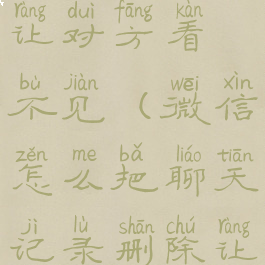 ràng duì fāng kàn
让对方看
bù jiàn wēi xìn
不见（微信
zěn me bǎ liáo tiān
怎么把聊天
jì lù shān chú ràng
记录删除让